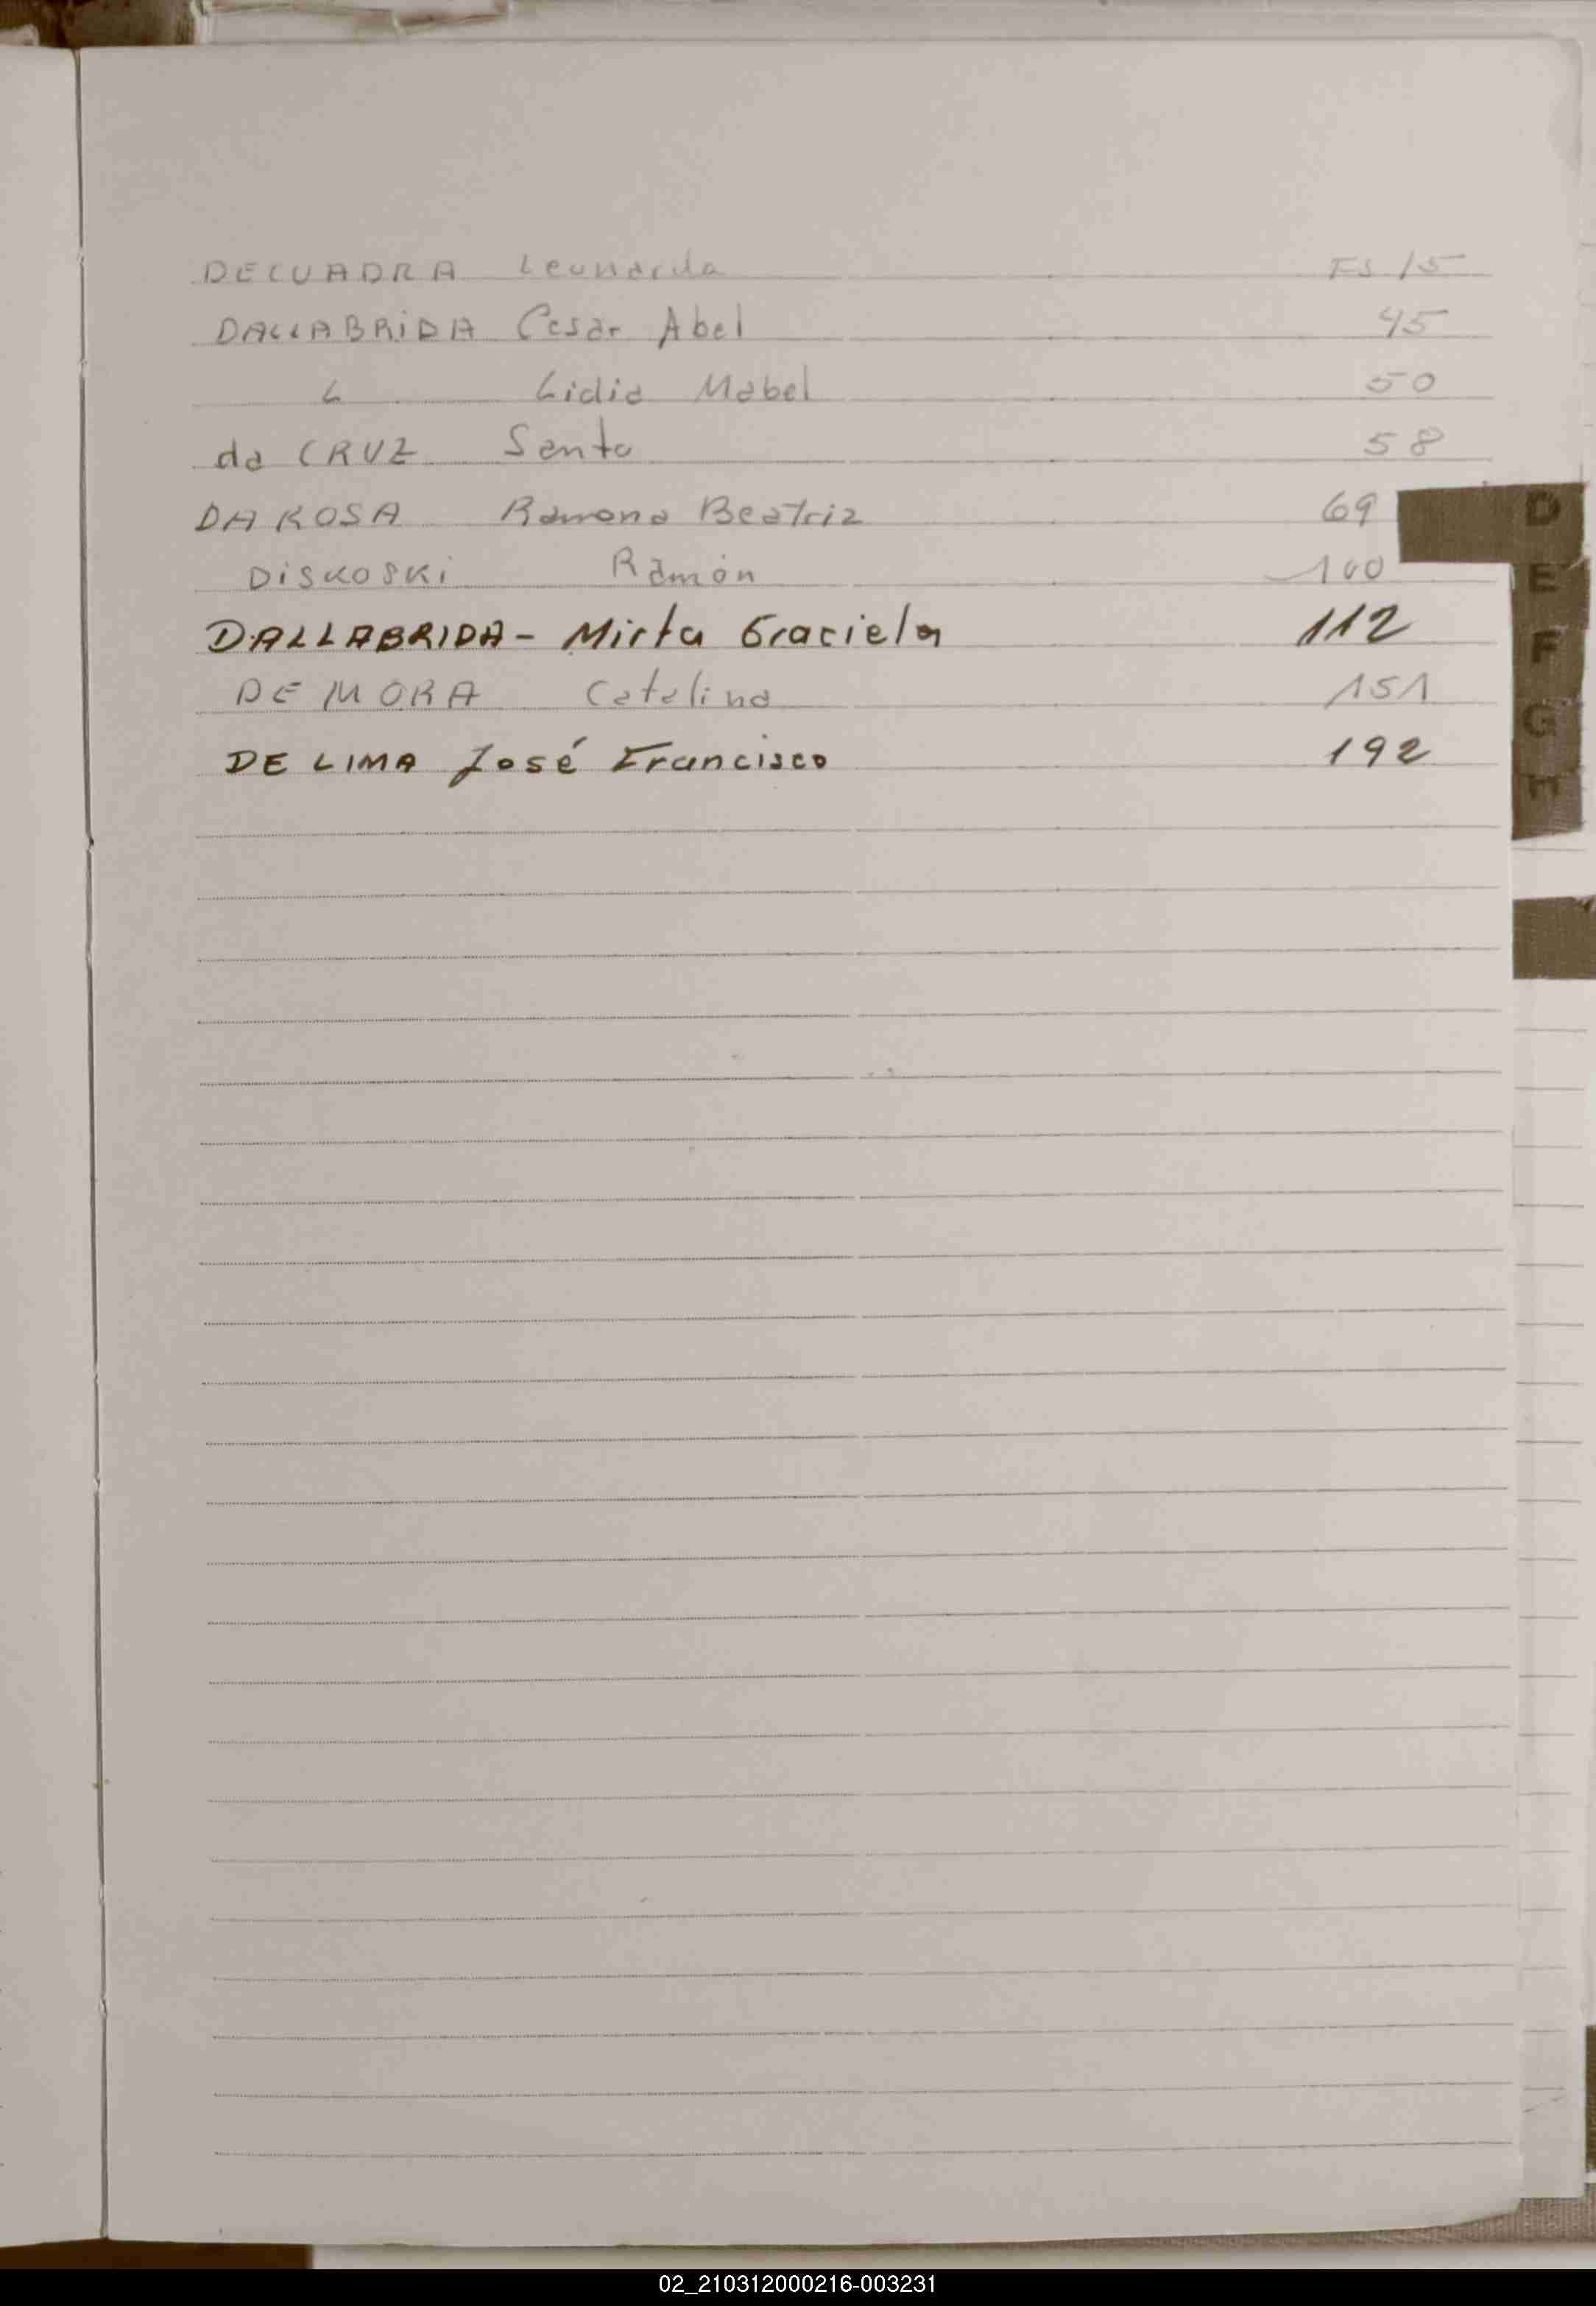 DECUADRA Leonarda FS 15
DALLABRIDA Cesar Abel 45
" Lidia Mabel 50
da CRUZ Santo 58
DA ROSA Ramona Beatriz 69
DISKOSKI Ramón 100
DALLABRIDA - Mirta Graciela 112
DE MORA Catalina 151
DE LIMA José Francisco 192
D
E
F
G
H
02_210312000216-003231